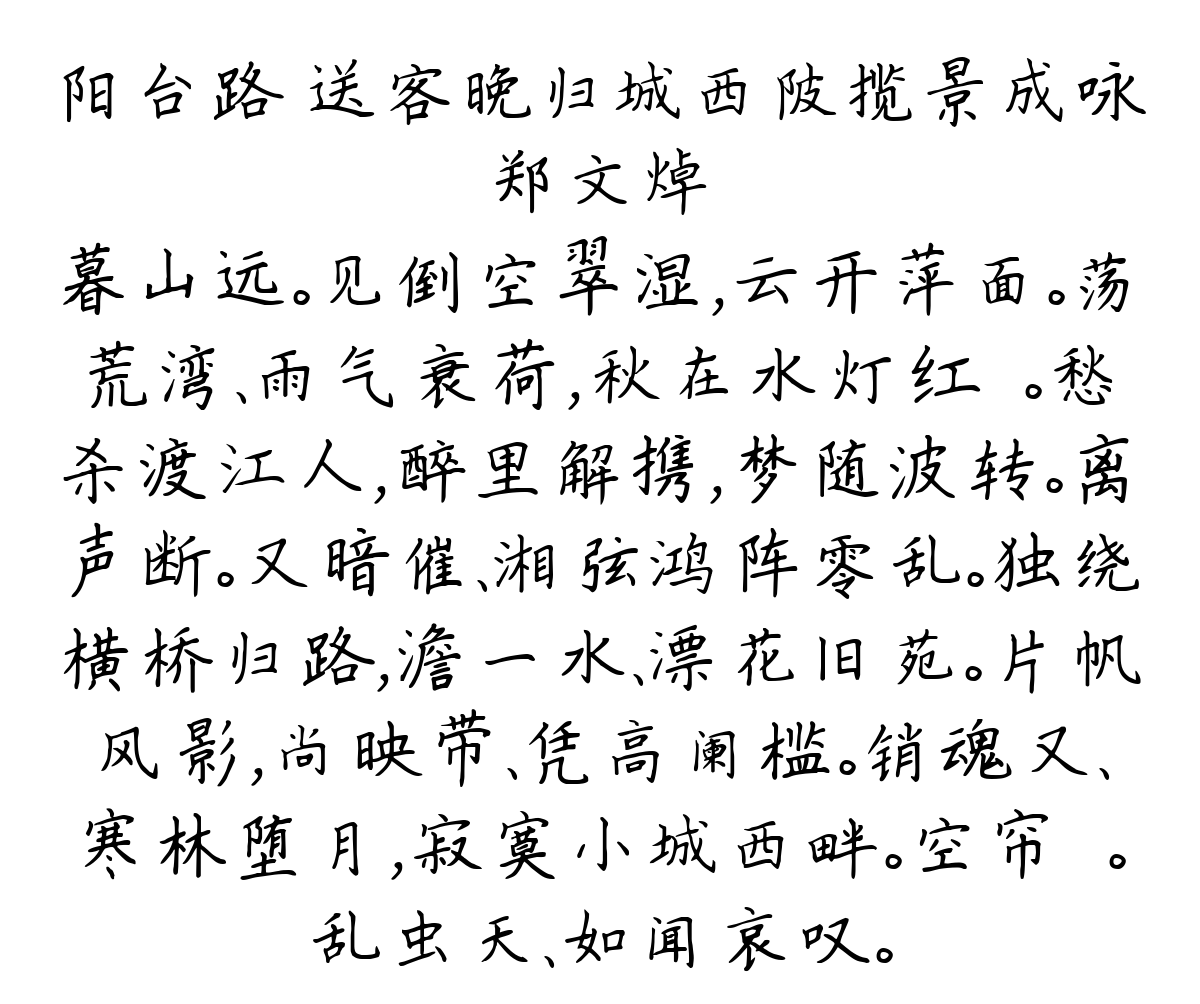 阳台路 送客晚归城西陂揽景成咏
郑文焯
暮山远。见倒空翠湿,云开萍面。荡
荒湾、雨气衰荷,秋在水灯红 。愁
杀渡江人,醉里解携,梦随波转。离
声断。又暗催、湘弦鸿阵零乱。独绕
横桥归路,澹一水、漂花旧苑。片帆
风影,尚映带、凭高阑槛。销魂又、
寒林堕月,寂寞小城西畔。空帘 。
乱虫天、如闻哀叹。